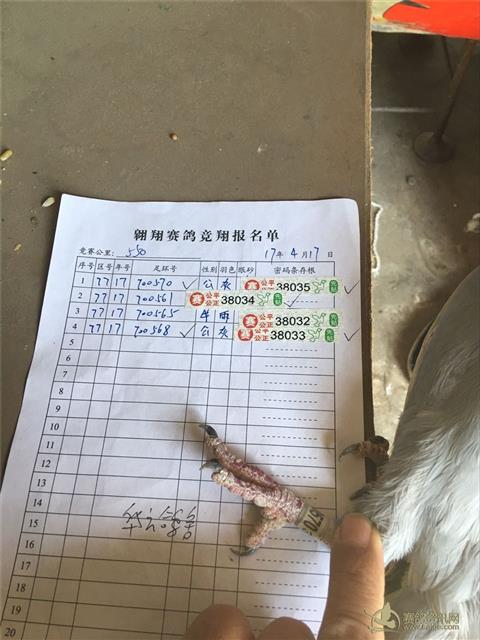 翱翔赛鸽竞翔报名单
竞赛公里: 550 17年 4月 17日
序号 区号 年号 足环号 性别 羽色 眼砂 密码条存根
1 77 17 700570 ✓ 公 灰 赛 公平 公正 38035 ✓
2 77 17 700561 赛 公平 公正 38034 ✓
3 77 17 700565 雨 赛 公平 公正 38032 ✓
4 77 17 700568 ✓ 公 灰 赛 公平 公正 38033 ✓
5
6
7
8
9
10
11
12
13
14
15
16
17
18
19
20
570
赛鸽资讯网